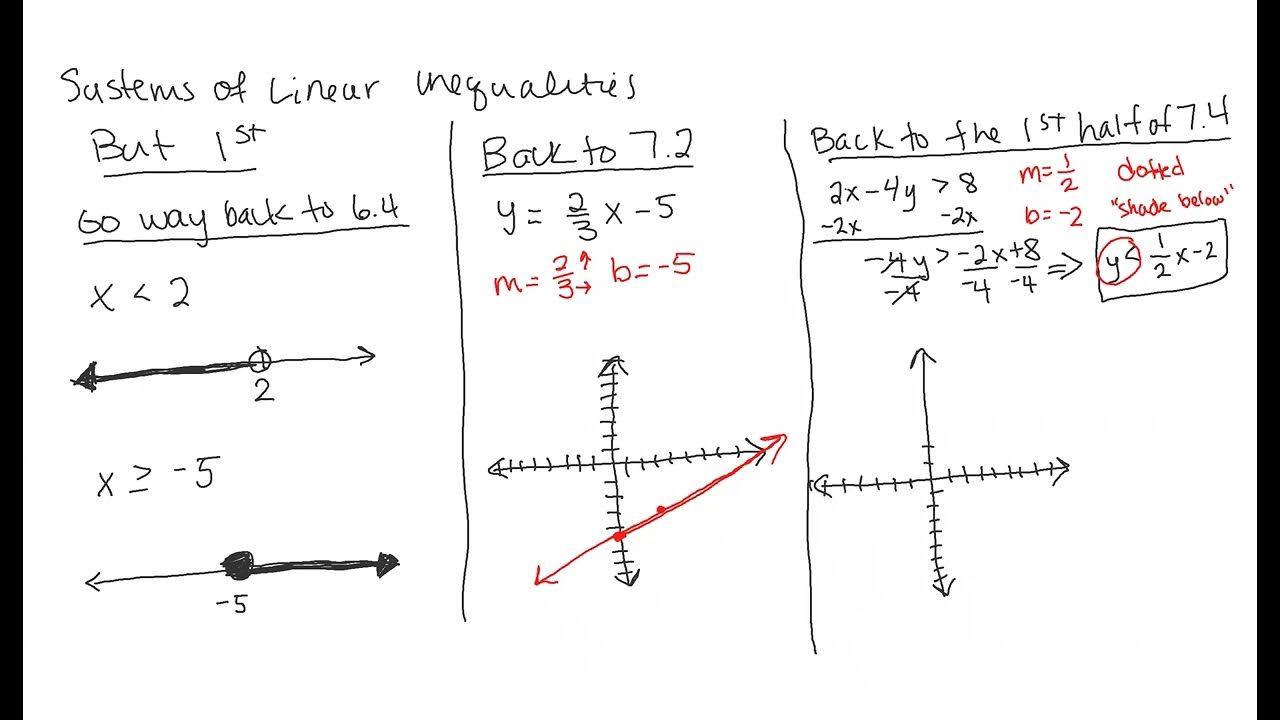 Systems of Linear Inequalities
But 1st
Go way back to 6.4
x < 2
2
x ≥ -5
-5
Back to 7.2
y = 2/3 x - 5
m = 2/3 ↑→ b = -5
Back to the 1st half of 7.4
2x - 4y > 8
-2x -2x
-4y/-4 > -2x/-4 + 8/-4 ⇒ y < 1/2 x - 2
m = 1/2 dotted
b = -2 "shade below"